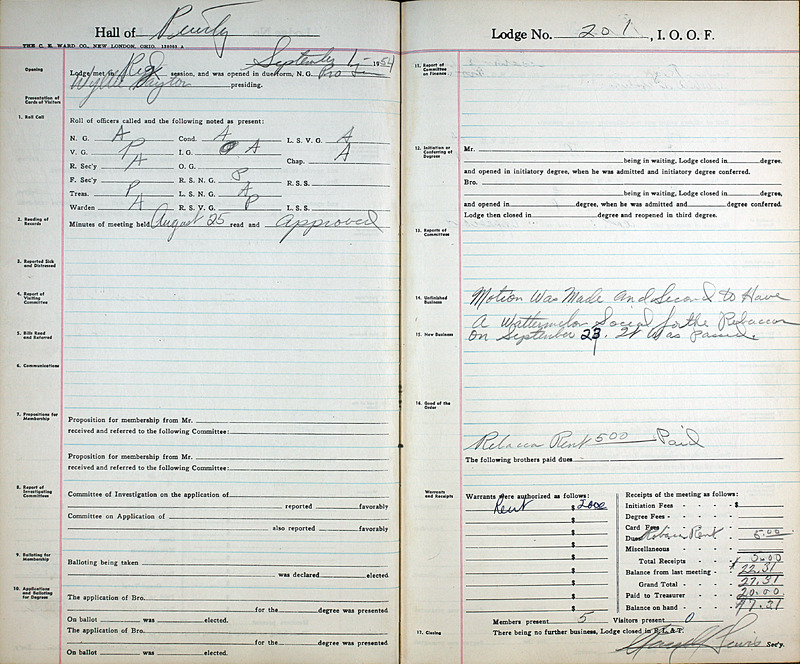 Hall of Purity
THE C. E. WARD CO., NEW LONDON, OHIO. 138083 A
September 1, 1954
Opening
Lodge met in Reg session, and was opened in due form, N. G. Pro Tem
Wyllie Dayton presiding.
Presentation of Cards of Visitors
1. Roll Call
Roll of officers called and the following noted as present:
N. G. A Cond. A L. S. V. G. A
V. G. P I. G. A Chap. A
R. Sec'y A O. G.
F. Sec'y R. S. N. G. P R. S. S.
Treas. P L. S. N. G. A
Warden A R. S. V. G. P L. S. S.
2. Reading of Records
Minutes of meeting held August 25 read and Approved
3. Reported Sick and Distressed
4. Report of Visiting Committee
5. Bills Read and Referred
6. Communications
7. Propositions for Membership
Proposition for membership from Mr.
received and referred to the following Committee:
Proposition for membership from Mr.
received and referred to the following Committee:
8. Report of Investigating Committees
Committee of Investigation on the application of
reported favorably
Committee on Application of
also reported favorably
9. Balloting for Membership
Balloting being taken
was declared elected
10. Applications and Balloting for Degrees
The application of Bro.
for the degree was presented
On ballot was elected.
The application of Bro.
for the degree was presented
On ballot was elected.
Lodge No. 201, I. O. O. F.
11. Report of Committee on Finance
12. Initiation or Conferring of Degrees
Mr.
being in waiting, Lodge closed in degree,
and opened in initiatory degree, when he was admitted and initiatory degree conferred.
Bro.
being in waiting, Lodge closed in degree,
and opened in degree, when he was admitted and degree conferred.
Lodge then closed in degree and reopened in third degree.
13. Reports of Committees
14. Unfinished Business
Motion Was Made And Second to Have
A Wattermelon Social for the Rebaccas
15. New Business
On September 23. It Was Passed.
16. Good of the Order
Rebacca Rent 5 00 Paid
The following brothers paid dues
Warrants and Receipts
Warrants were authorized as follows:
Rent $ 2000
$
$
$
$
$
$
$
$
Receipts of the meeting as follows:
Initiation Fees $
Degree Fees
Card Fees
Dues Rebacca Rent 5.00
Miscellaneous
Total Receipts 5.00
Balance from last meeting $ 22.31
Grand Total 27.31
Paid to Treasurer 20.00
Balance on hand $ 7.31
Members present 5 Visitors present 0
17. Closing
There being no further business, Lodge closed in F. L. & T.
Lewis Sec'y.